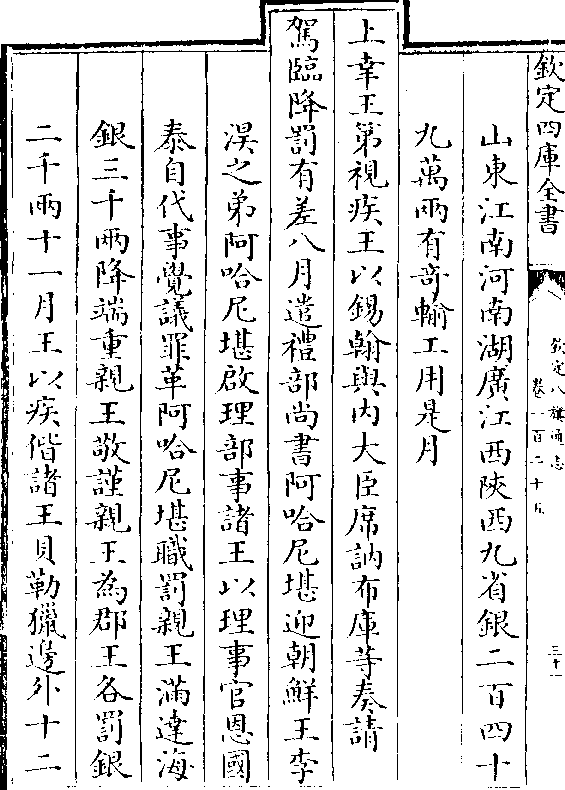 欽定四庫全書
欽定八旗通志
卷一百二十九
三十一
山東江南河南湖廣江西陜西九省銀二百四十
九萬兩有竒輸工用是月
上幸王第視疾王以錫翰與内大臣席訥布庫等奏請
駕臨降罰有差八月遣禮部尚書阿哈尼堪迎朝鮮王李
淏之弟阿哈尼堪啟理部事諸王以理事官恩國
泰自代事覺議罪革阿哈尼堪職罰親王滿達海
銀三千兩降端重親王敬謹親王為郡王各罰銀
二千兩十一月王以疾偕諸王貝勒獵邊外十二